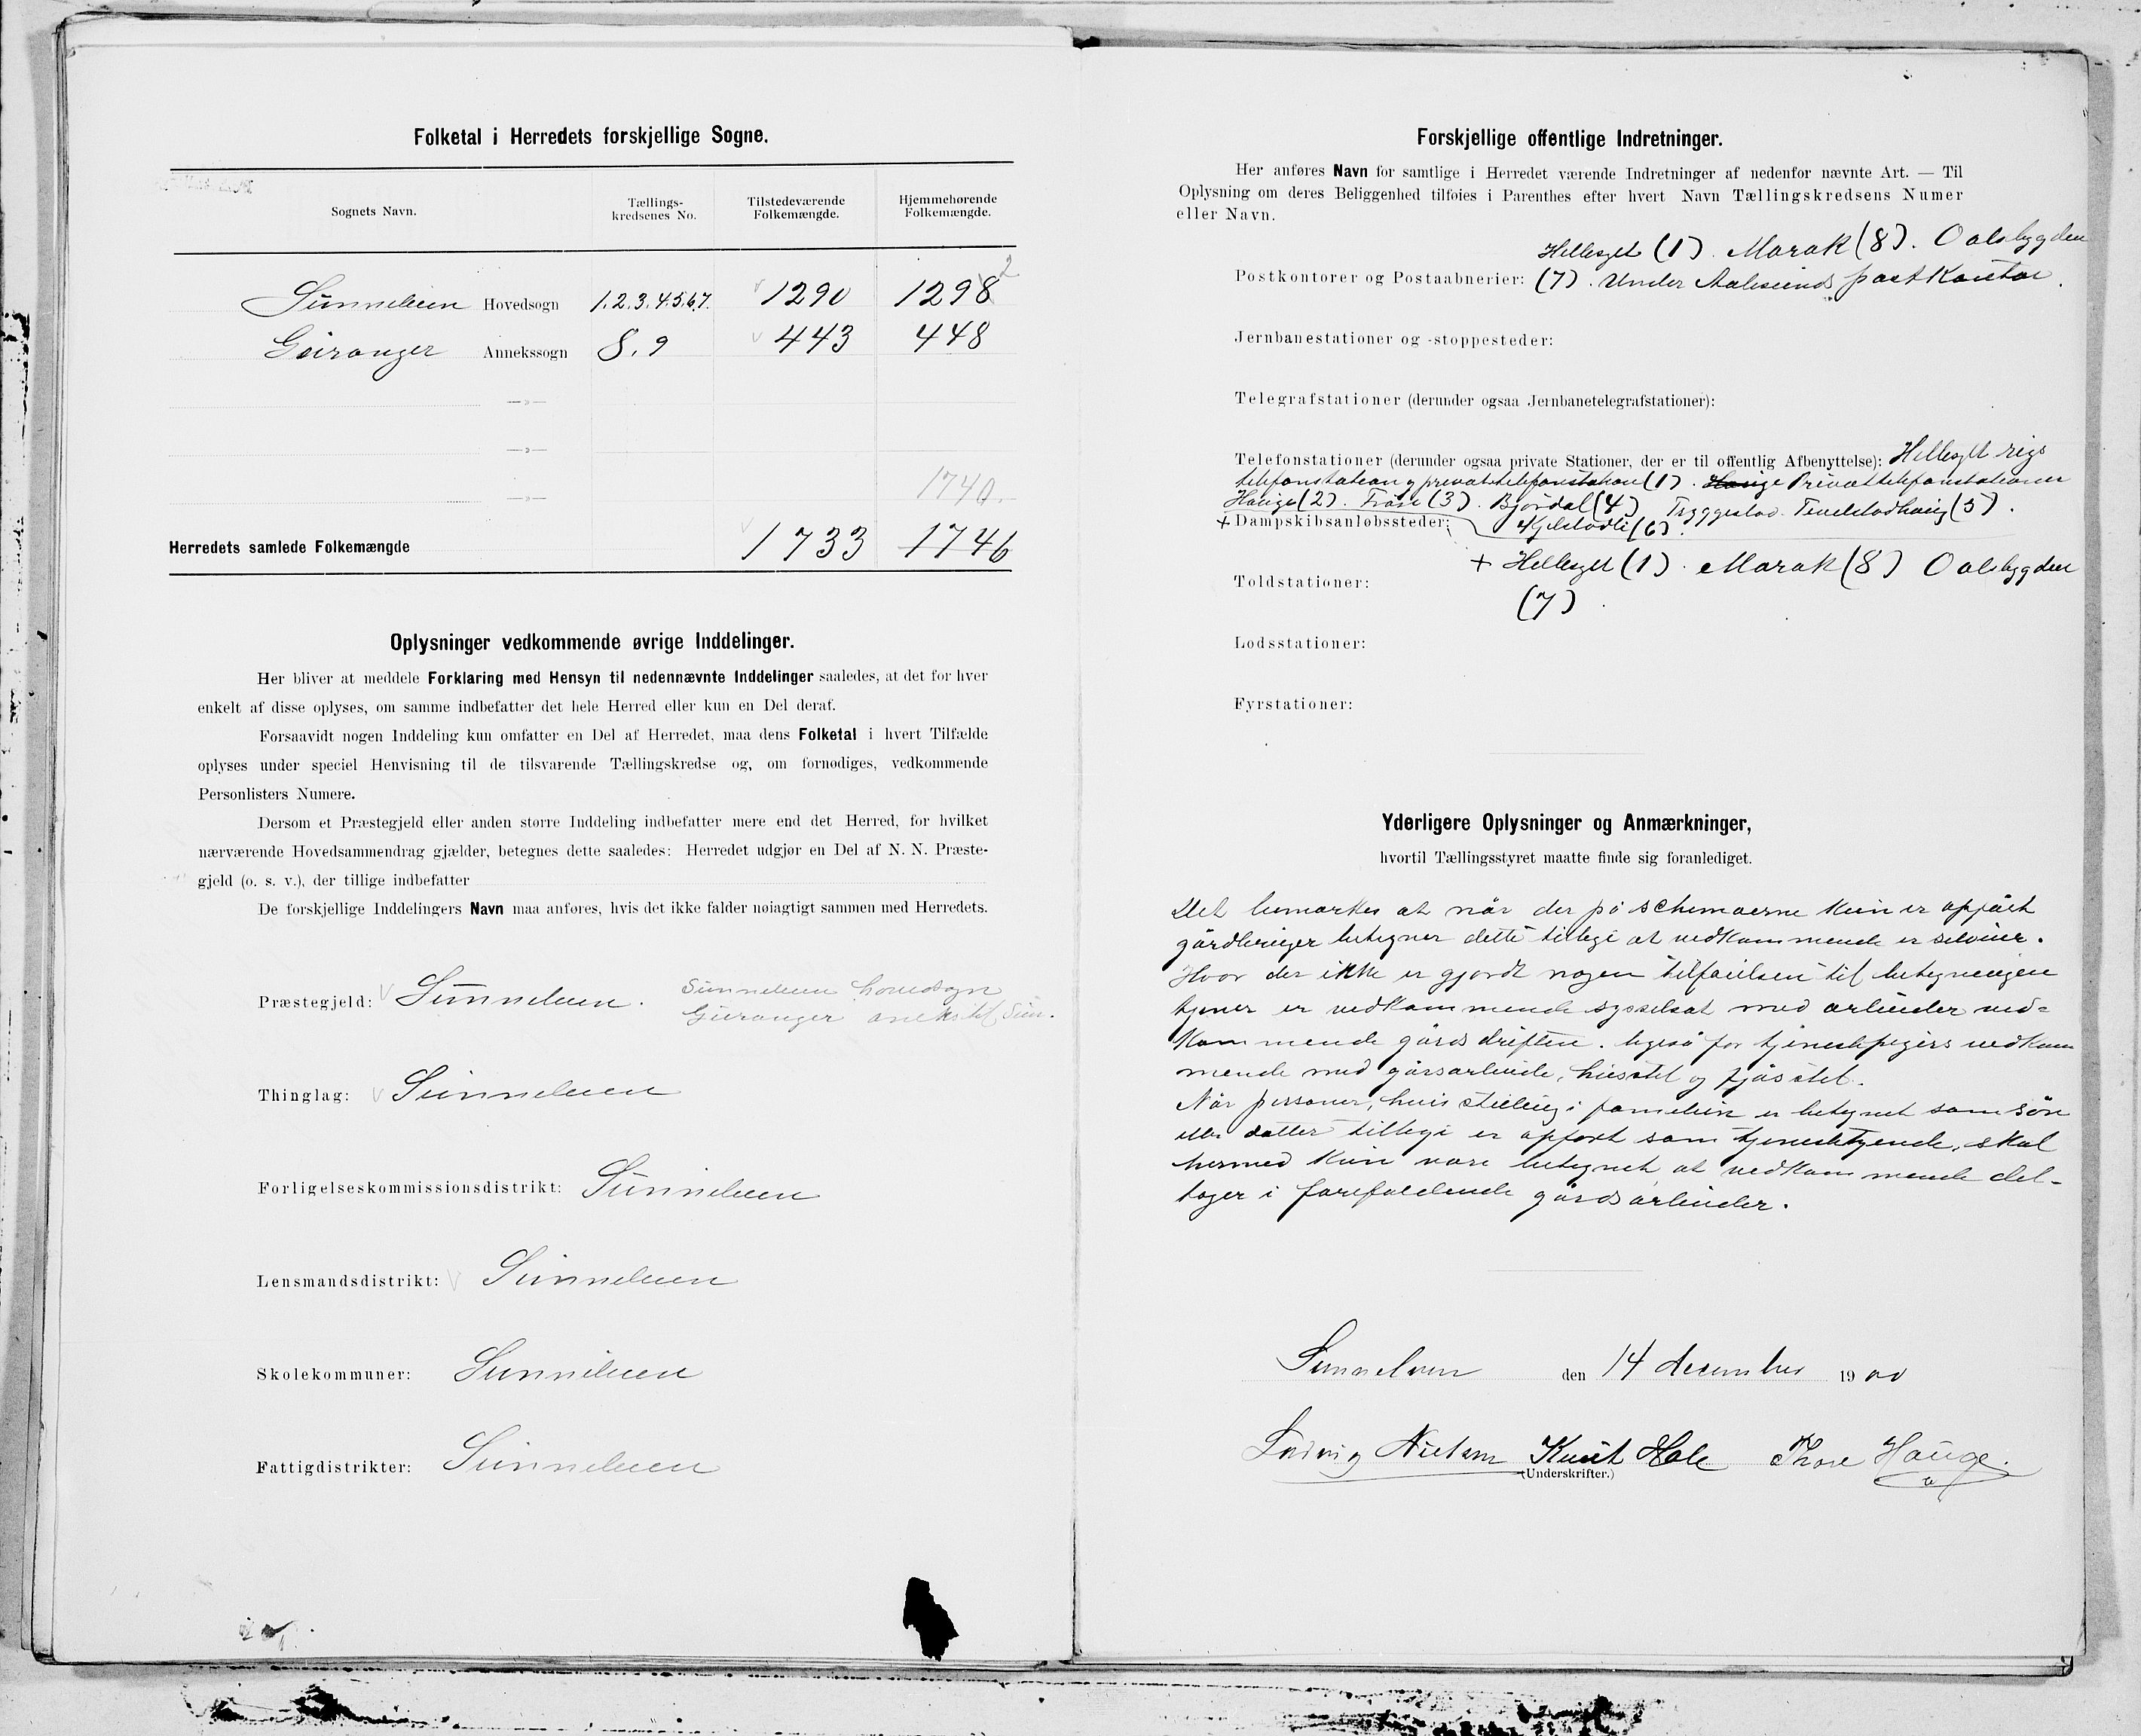 Folketal i Herredets forskjellige Sogne.
Sognets Navn.
Tællings-
kredsenes No.
Tilstedeværende
Folkemængde.
Hjemmehørende
Folkemængde.
Sunnelven Hovedsogn 1.2.3.4.5.6.7. 1290 1298 2
Geiranger Annekssogn 8.9 443 448
—»—
—»—
—»— 1740.
Herredets samlede Folkemængde 1733 1746
Oplysninger vedkommende øvrige Inddelinger.
Her bliver at meddele Forklaring med Hensyn til nedennævnte Inddelinger saaledes, at det for hver
enkelt af disse oplyses, om samme indbefatter det hele Herred eller kun en Del deraf.
Forsaavidt nogen Inddeling kun omfatter en Del af Herredet, maa dens Folketal i hvert Tilfælde
oplyses under speciel Henvisning til de tilsvarende Tællingskredse og, om fornødiges, vedkommende
Personlisters Numere.
Dersom et Præstegjeld eller anden større Inddeling indbefatter mere end det Herred, for hvilket
nærværende Hovedsammendrag gjælder, betegnes dette saaledes: Herredet udgjør en Del af N. N. Præste-
gjeld (o. s. v.), der tillige indbefatter
De forskjellige Inddelingers Navn maa anføres, hvis det ikke falder nøiagtigt sammen med Herredets.
Præstegjeld: Sunnelven. Sunnelven hovedsogn
Geiranger aneks til Sun.
Thinglag: Sunnelven
Forligelseskommissionsdistrikt: Sunnelven
Lensmandsdistrikt: Sunnelven
Skolekommuner: Sunnelven
Fattigdistrikter: Sunnelven
Forskjellige offentlige Indretninger.
Her anføres Navn for samtlige i Herredet værende Indretninger af nedenfor nævnte Art. — Til
Oplysning om deres Beliggenhed tilføies i Parenthes efter hvert Navn Tællingskredsens Numer
eller Navn.
Hellesylt (1). Marak (8). Oalsbygden
Postkontorer og Postaabnerier: (7). Under Aalesunds postkontor.
Jernbanestationer og -stoppesteder:
Telegrafstationer (derunder ogsaa Jernbanetelegrafstationer):
Telefonstationer (derunder ogsaa private Stationer, der er til offentlig Afbenyttelse): Hellesylt rigs
telefonstation og privattelefonstation (1). Hauge Privattelefonstationer
Hauge (2). Frøse (3). Bjørdal (4) Tryggestad. Tendelodhaug (5).
+ Dampskibsanløbssteder: Kjelstadli (6).
+ Hellesylt (1). Marak (8) Oalsbygden
Toldstationer:
(7).
Lodsstationer:
Fyrstationer:
Yderligere Oplysninger og Anmærkninger,
hvortil Tællingsstyret maatte finde sig foranlediget.
Det bemærkes at når der på schemaerne kun er opført
gårdbruger betegner dette tillige at vedkommende er selveier.
Hvor der ikke er gjordt nogen tilføielsen til betegningen
tjener er vedkommende sysselsat med arbeider ved=
kommende gårdsdriften. ligeså for tjenestepigers vedkom
mende med gårsarbeide, husstel og fjøsstel.
Når personer, hvis stilling i familien er betegnet som søn
eller datter tillige er opført som tjenestetyende, skal
hermed kun være betegnet at vedkommende del-
tager i forefaldende gårdsarbeider.
Sunnelven den 14 december 1900
Ludvig Nielsen Knut Hole Thore Hauge.
(Underskrifter.)